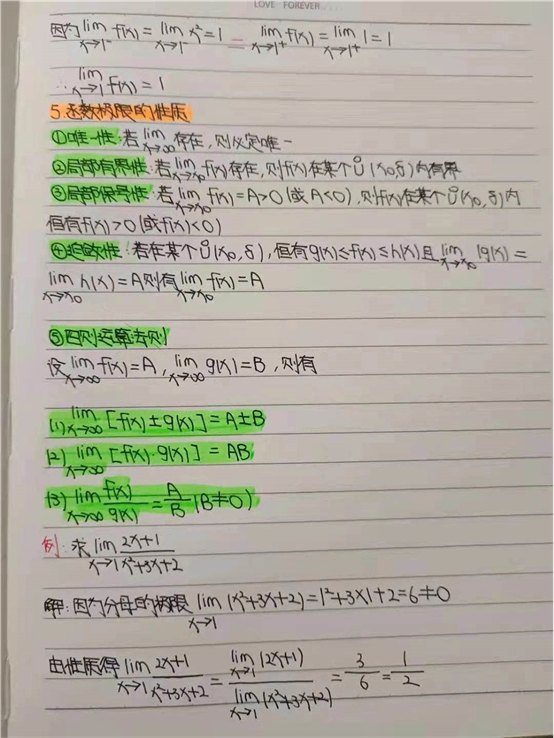 LOVE FOREVER...
因为lim(x→1⁻) f(x) = lim(x→1⁻) x² = 1 = lim(x→1⁺) f(x) = lim(x→1⁺) 1 = 1
∴ lim(x→1) f(x) = 1
5.函数极限的性质
①唯一性:若lim(x→∞)存在,则必定唯一
②局部有界性:若lim(x→x₀) f(x)存在,则f(x)在某个Ů(x₀,δ)内有界
③局部保号性:若lim(x→x₀) f(x)=A>0(或A<0),则f(x)在某个Ů(x₀,δ)内
恒有f(x)>0(或f(x)<0)
④迫敛性:若在某个Ů(x₀,δ),恒有g(x)≤f(x)≤h(x)且lim(x→x₀) g(x)=
lim(x→x₀) h(x)=A则有lim(x→x₀) f(x)=A
⑤四则运算法则
设lim(x→∞) f(x)=A,lim(x→∞) g(x)=B,则有
(1) lim(x→∞) [f(x)±g(x)]=A±B
(2) lim(x→∞) [f(x)·g(x)]=AB
(3) lim(x→∞) f(x)/g(x)=A/B(B≠0)
例:求lim(x→1) (2x+1)/(x²+3x+2)
解:因为分母的极限lim(x→1) (x²+3x+2)=1²+3×1+2=6≠0
由性质得lim(x→1) (2x+1)/(x²+3x+2) = lim(x→1) (2x+1)/lim(x→1) (x²+3x+2) = 3/6 = 1/2